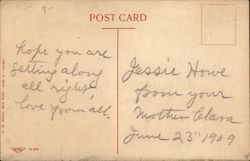 POST CARD
hope you are
getting along
all right
love from all.
Jessie Howe
from your
Mother Clara
June 23" 1909